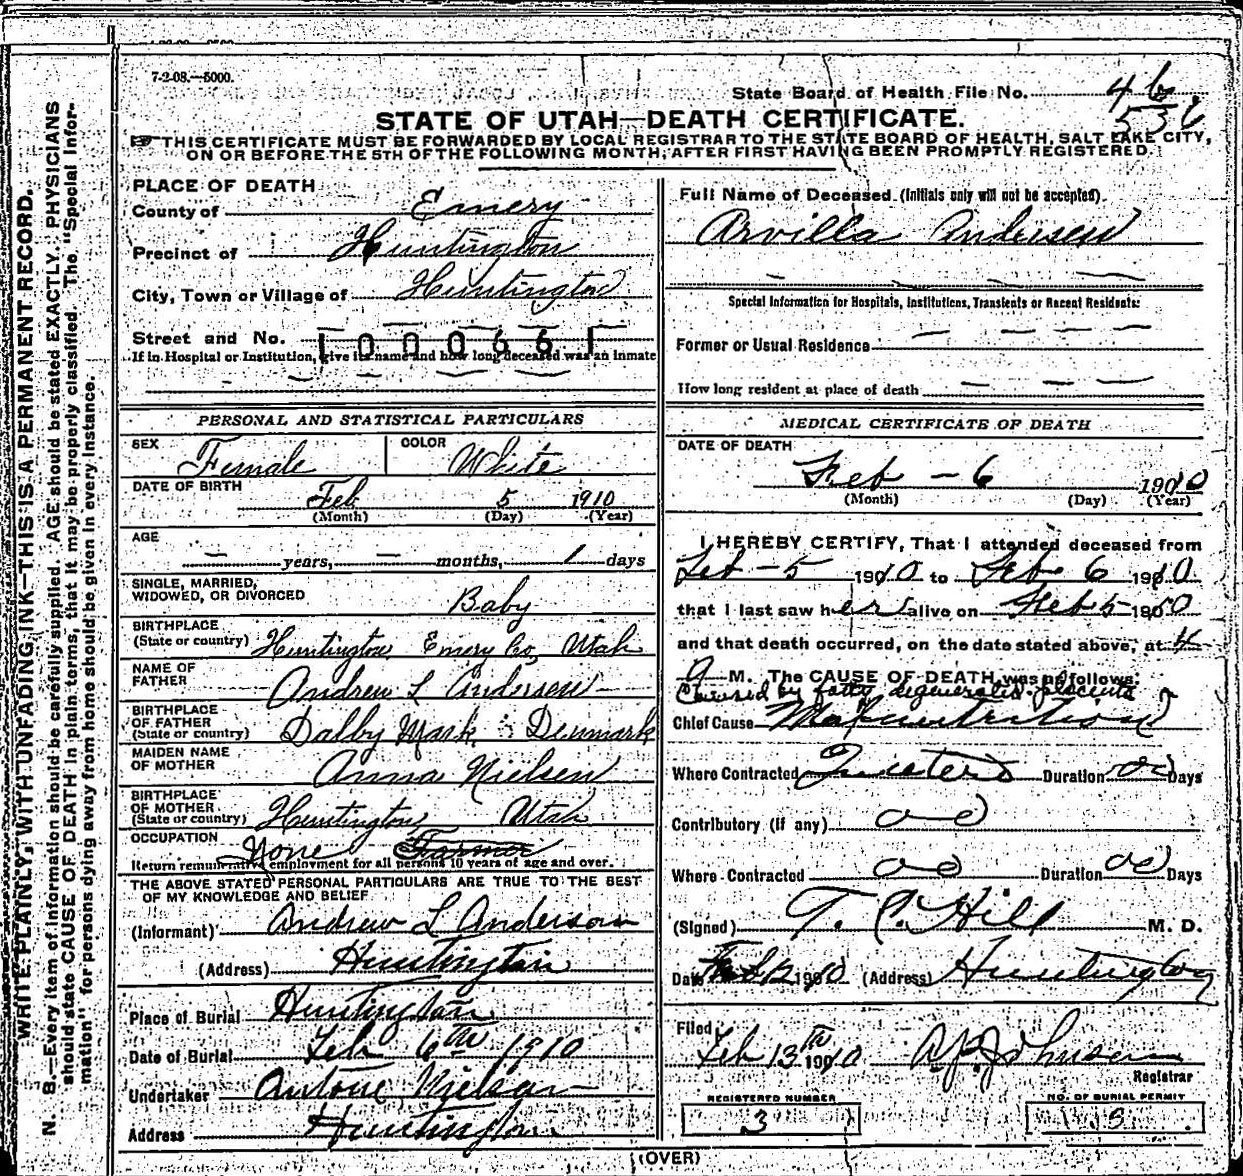 7-2-08.—5000.
State Board of Health File No. 46
536
STATE OF UTAH—DEATH CERTIFICATE.
☞ THIS CERTIFICATE MUST BE FORWARDED BY LOCAL REGISTRAR TO THE STATE BOARD OF HEALTH, SALT LAKE CITY,
ON OR BEFORE THE 5TH OF THE FOLLOWING MONTH, AFTER FIRST HAVING BEEN PROMPTLY REGISTERED.
WRITE PLAINLY, WITH UNFADING INK—THIS IS A PERMANENT RECORD.
N. B.—Every item of information should be carefully supplied. AGE should be stated EXACTLY. PHYSICIANS
should state CAUSE OF DEATH in plain terms, that it may be properly classified. The "Special Infor-
mation" for persons dying away from home should be given in every instance.
PLACE OF DEATH
County of Emery
Precinct of Huntington
City, Town or Village of Huntington
Street and No.
100066
If in Hospital or Institution, give its name and how long deceased was an inmate
PERSONAL AND STATISTICAL PARTICULARS
SEX Female COLOR White
DATE OF BIRTH Feb 5 1910
(Month) (Day) (Year)
AGE
— years, — months, 1 days
SINGLE, MARRIED,
WIDOWED, OR DIVORCED Baby
BIRTHPLACE
(State or country) Huntington Emery Co, Utah
NAME OF
FATHER Andrew L Andersen
BIRTHPLACE
OF FATHER
(State or country) Dalby Mark Denmark
MAIDEN NAME
OF MOTHER Anna Nielsen
BIRTHPLACE
OF MOTHER
(State or country) Huntington, Utah
OCCUPATION None Farmer
Return remunerative employment for all persons 10 years of age and over.
THE ABOVE STATED PERSONAL PARTICULARS ARE TRUE TO THE BEST
OF MY KNOWLEDGE AND BELIEF
(Informant) Andrew L Anderson
(Address) Huntington
Place of Burial Huntington
Date of Burial Feb 6th 1910
Undertaker Antone Nielson
Address Huntington
Full Name of Deceased (Initials only will not be accepted).
Arvilla Andersen
Special Information for Hospitals, Institutions, Transients or Recent Residents:
Former or Usual Residence — — — —
How long resident at place of death — — —
MEDICAL CERTIFICATE OF DEATH
DATE OF DEATH
Feb - 6 1910
(Month) (Day) (Year)
I HEREBY CERTIFY, That I attended deceased from
Feb - 5 1910 to Feb 6 1910
that I last saw her alive on Feb 5 1910
and that death occurred, on the date stated above, at 4
a M. The CAUSE OF DEATH was as follows:
Caused by fatty degenerated placenta
Chief Cause Malnutrition
Where Contracted In utero Duration Days
Contributory (if any)
Where Contracted Duration Days
(Signed) T. C. Hill M. D.
Date Feb 12 1910 (Address) Huntington
Filed
Feb 13th 1910
Johnson
Registrar
REGISTERED NUMBER
3
NO. OF BURIAL PERMIT
(OVER)